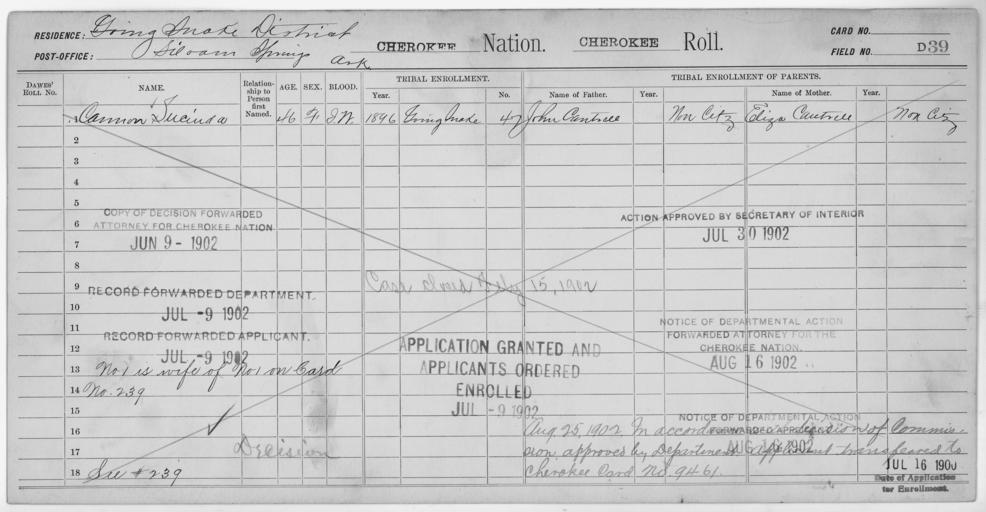 RESIDENCE: Going Snake District
POST-OFFICE: Siloam Springs Ark.
CHEROKEE Nation. CHEROKEE Roll.
CARD NO.
FIELD NO. D39
DAWES' ROLL NO.
NAME.
Relationship to Person first Named.
AGE.
SEX.
BLOOD.
TRIBAL ENROLLMENT.
Year.
No.
TRIBAL ENROLLMENT OF PARENTS.
Name of Father.
Year.
Name of Mother.
Year.
1 Cannon Lucinda 46 F I.W. 1896 Going Snake 47 John Cantrell Non Citz Eliza Cantrell Non Citz
2
3
4
5
COPY OF DECISION FORWARDED
6 ATTORNEY FOR CHEROKEE NATION
JUN 9 - 1902
ACTION APPROVED BY SECRETARY OF INTERIOR
JUL 30 1902
7
8
9 Case closed July 15, 1902
RECORD FORWARDED DEPARTMENT.
10 JUL -9 1902
11 RECORD FORWARDED APPLICANT.
12 JUL -9 1902
NOTICE OF DEPARTMENTAL ACTION
FORWARDED ATTORNEY FOR THE
CHEROKEE NATION.
AUG 16 1902
APPLICATION GRANTED AND
APPLICANTS ORDERED
ENROLLED
JUL -9 1902
13 No1 is wife of No1 on Card
14 No. 239
15
NOTICE OF DEPARTMENTAL ACTION
FORWARDED APPLICANT
AUG 16 1902
16 Aug. 25, 1902. In accordance with decision of Commis-
17 Decision sion approved by Department applicant transferred to
18 See # 239 Cherokee Card No. 9461.
JUL 16 1900
Date of Application
for Enrollment.